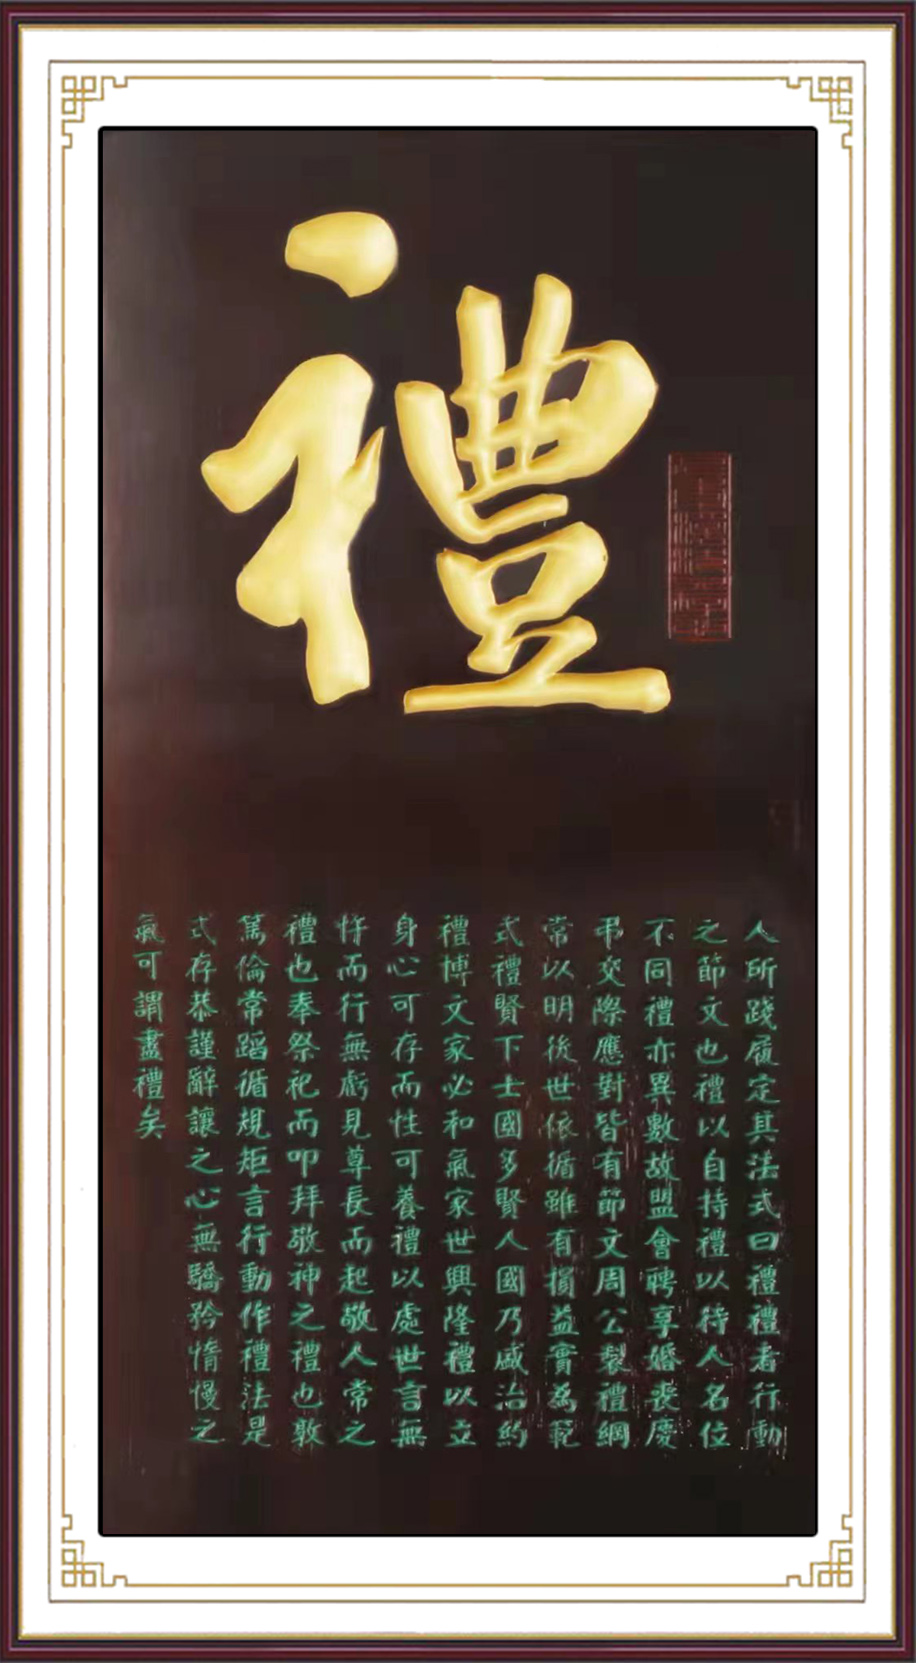 禮
人所踐履定其法式曰禮禮者行動
之節文也禮以自持禮以待人名位
不同禮亦異數故盟會聘享婚喪慶
弔交際應對皆有節文周公製禮綱
常以明後世依循雖有損益實為範
式禮賢下士國多賢人國乃盛治約
禮博文家必和氣家世興隆禮以立
身心可存而性可養禮以處世言無
忤而行無虧見尊長而起敬人常之
禮也奉祭祀而叩拜敬神之禮也敦
篤倫常蹈循規矩言行動作禮法是
式存恭謹辭讓之心無驕矜惰慢之
氣可謂盡禮矣